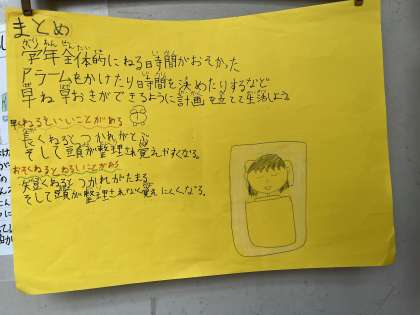 まとめ
がく ねん ぜん たい てき
学年全体的にねる時間がおそかった
アラームをかけたり時間を決めたりするなど
草ね草おきができるように計画を立てて生活しよう
早くねるといいことがある
長くねるとつかれがとぶ
そして頭が整理され覚えやすくなる。
おそくねるとわるいことがある
短くねるとつかれがたまる
そして頭が整理されなく覚えにくくなる。